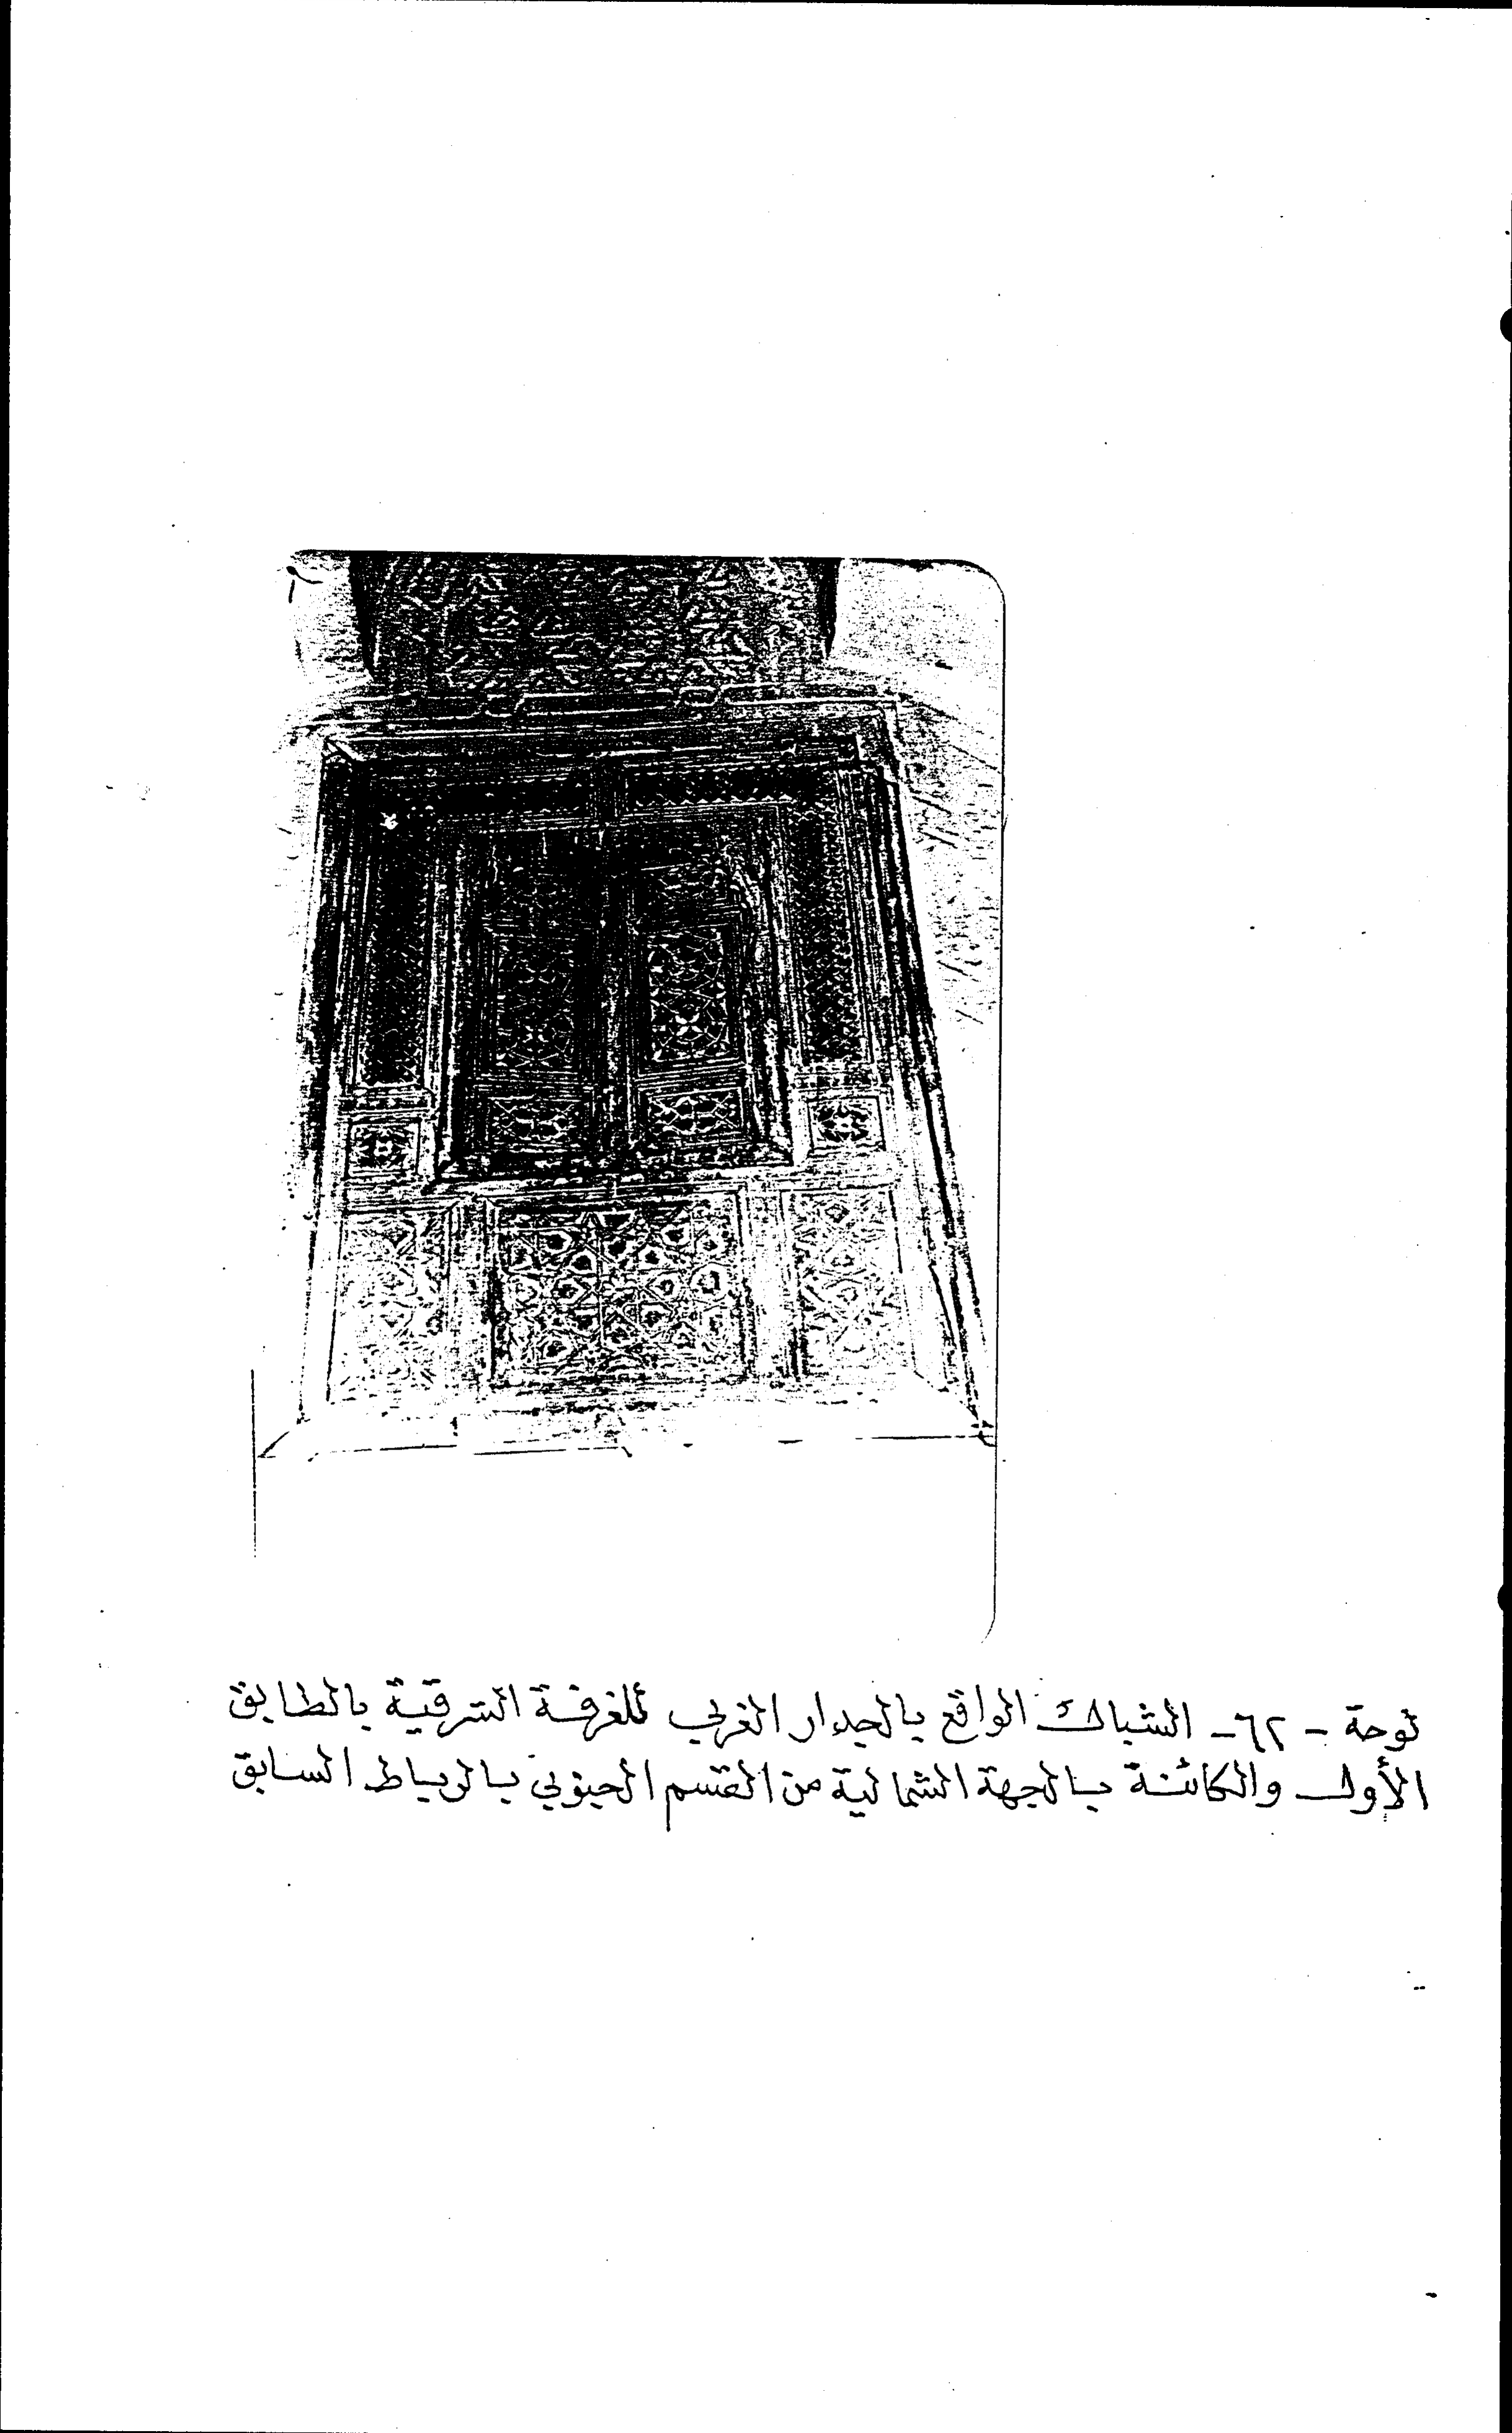 لوحة - ٦٢- الشباك الواقع بالجدار الغربي للغرفة الشرقية بالطابق
الأول والكائنة بالجهة الشمالية من القسم الجنوبي بالرباط السابق